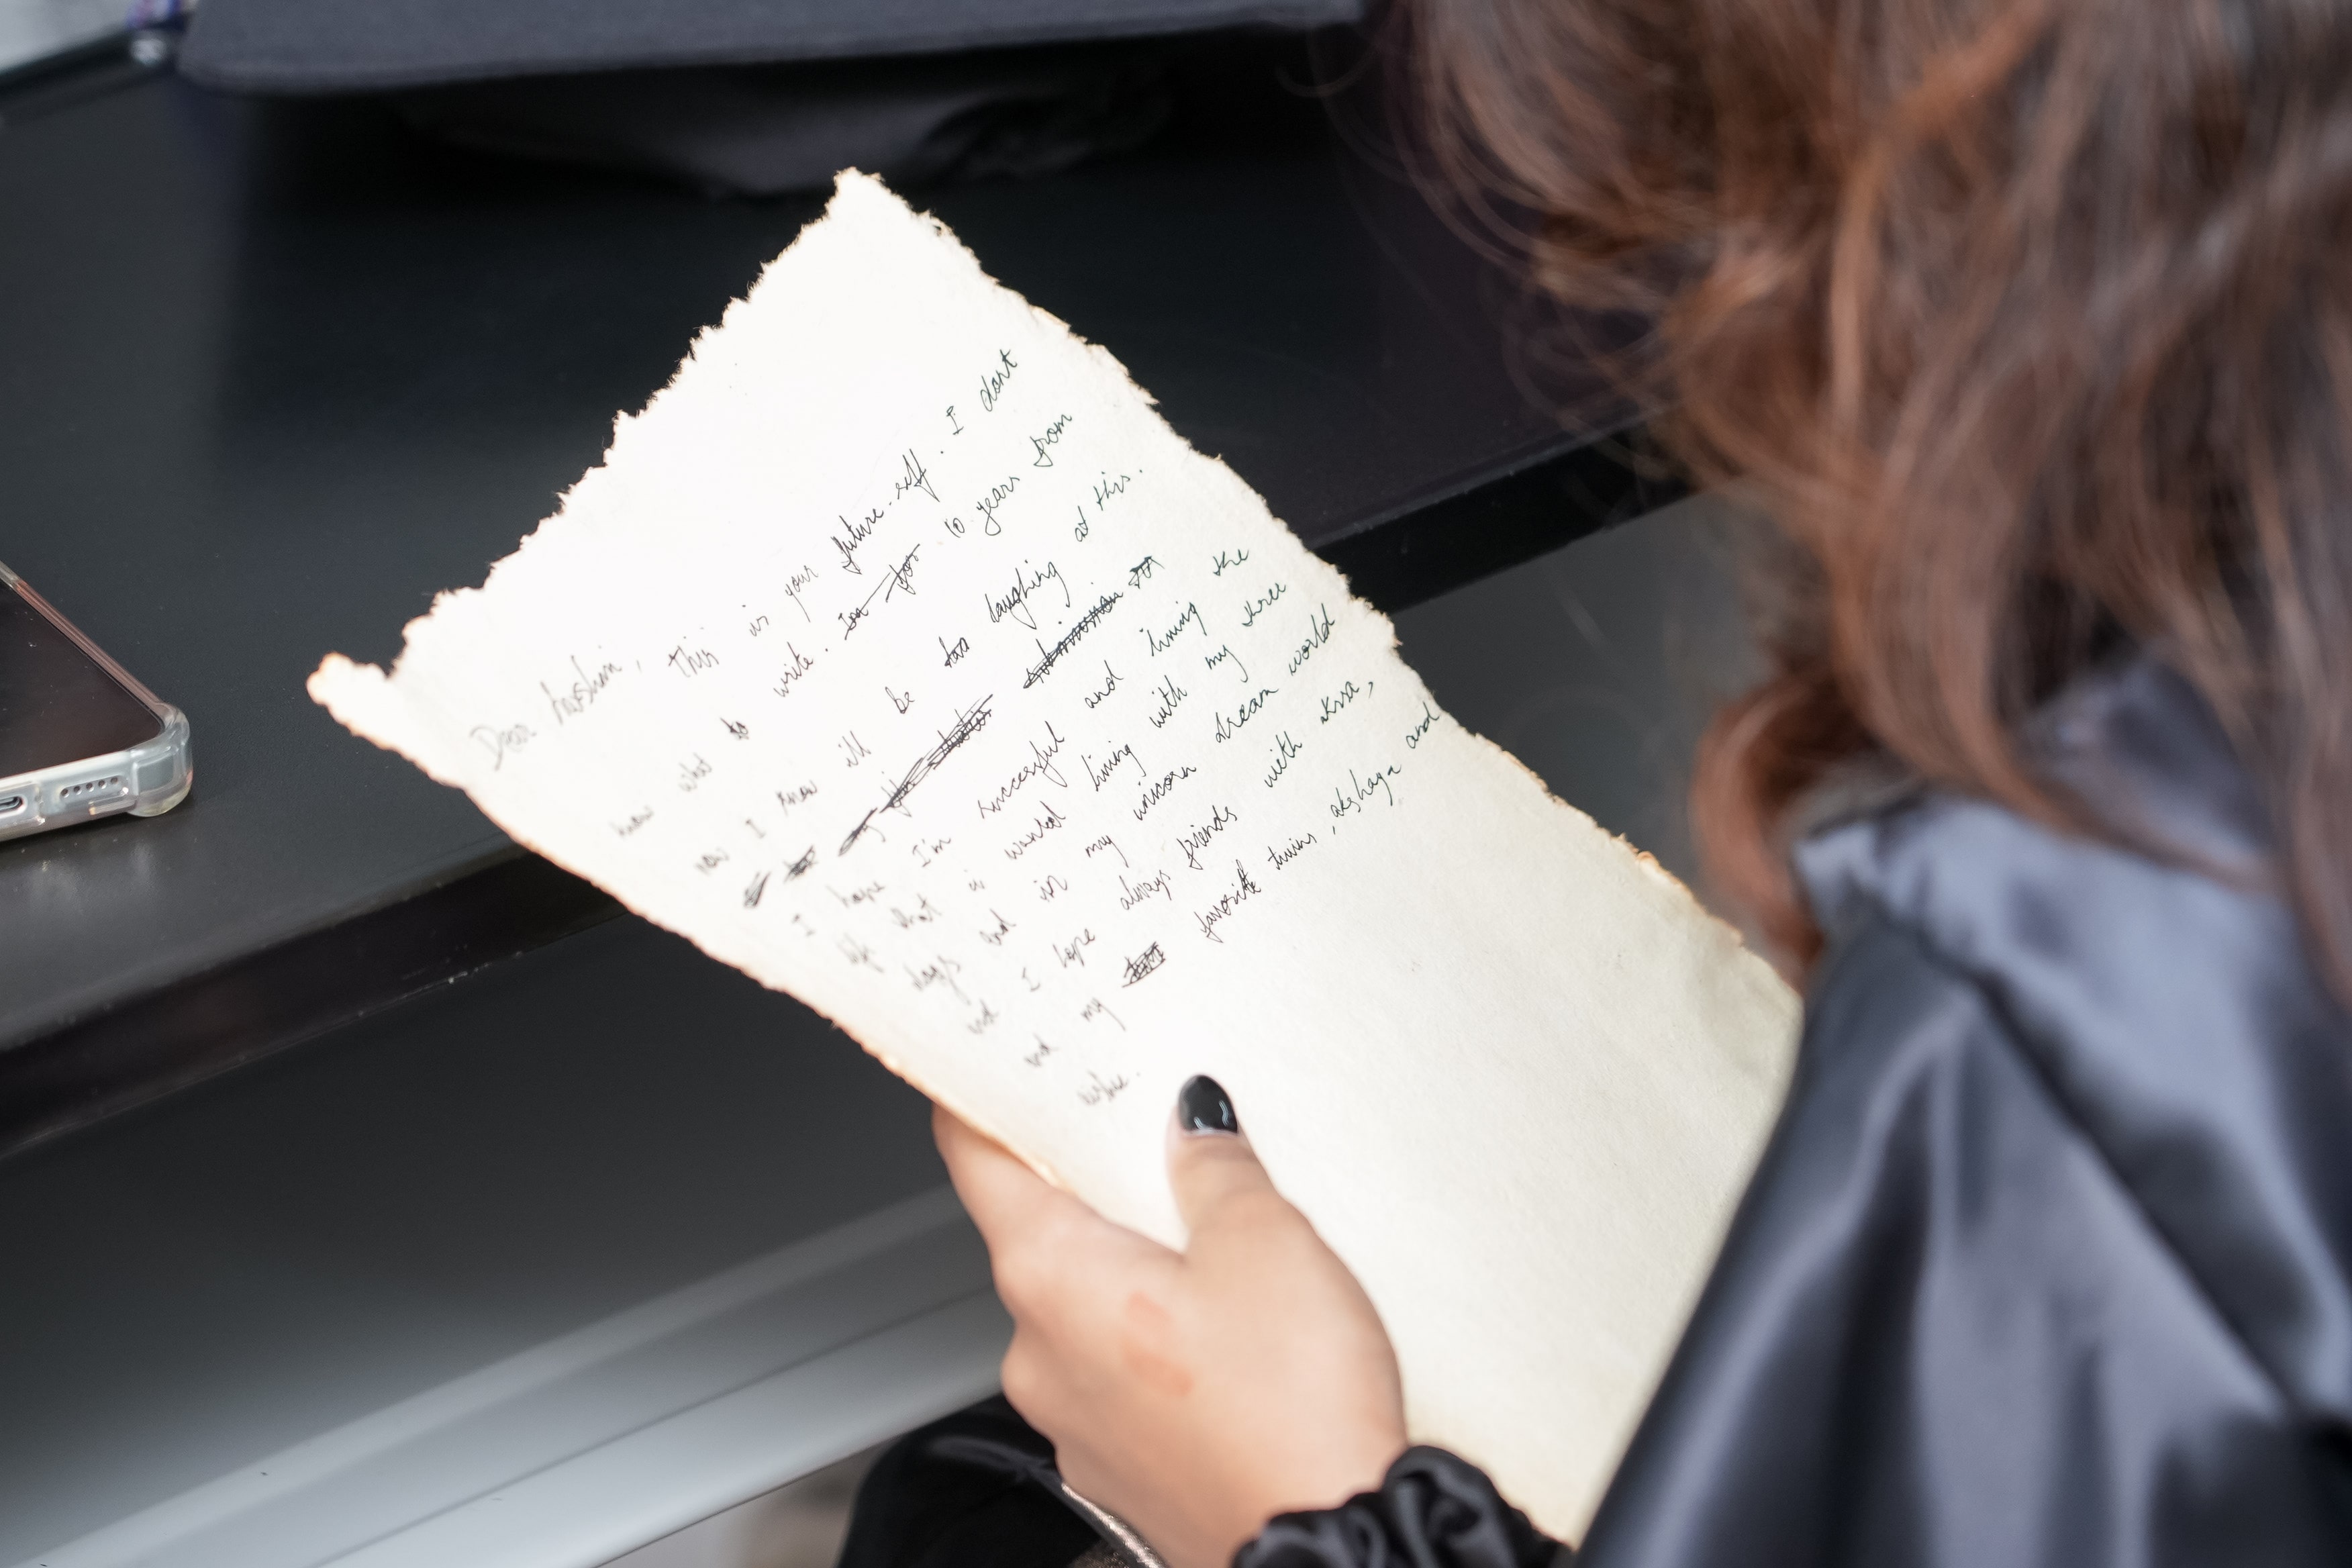 Dear harshini, this is your future-self. I dont
know what to write. Im for 10 years from
now I know ill be laughing at this.
I hope I'm successful and living the
life that i wanted living with my three
dogs and in my unicorn dream world
and I hope always friends with
and my favorite twins, akshaya and